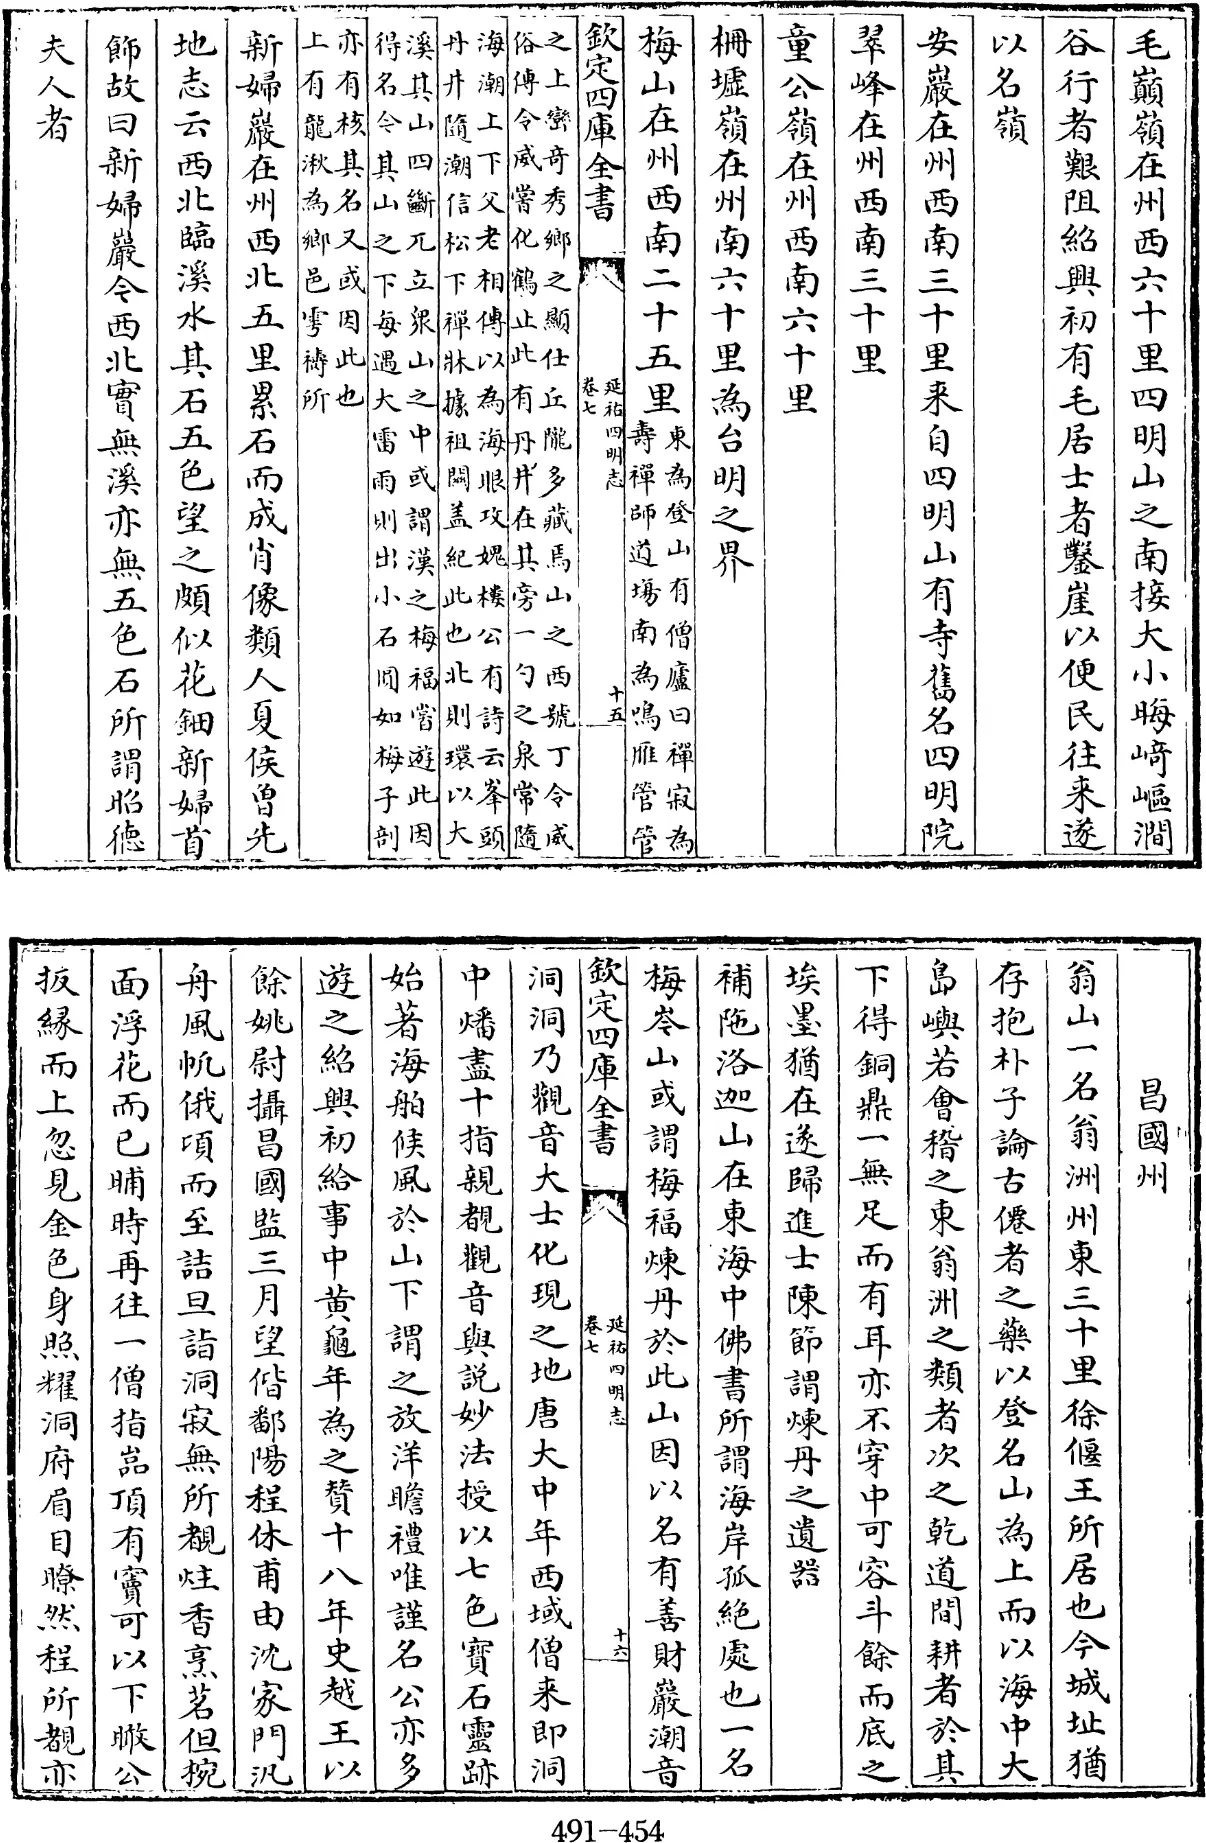 毛巓嶺在州西六十里四明山之南接大小晦﨑嶇澗
谷行者艱阻紹興初有毛居士者鑿崖以便民往来遂
以名嶺
安巖在州西南三十里来自四明山有寺舊名四明院
翠峰在州西南三十里
童公嶺在州西南六十里
柵墟嶺在州南六十里為台明之界
梅山在州西南二十五里
東為登山有僧廬曰禪寂為
壽禪師道塲南為鳴雁管管
欽定四庫全書
延祐四明志
卷七
十五
之上巒竒秀鄉之顯仕丘隴多藏焉山之西號丁令威
俗傳令威嘗化鶴止此有丹井在其旁一勺之泉常隨
海潮上下父老相傳以為海眼攻媿樓公有詩云峯頭
丹井隨潮信松下禪牀據祖關盖紀此也北則環以大
溪其山四斷兀立衆山之中或謂漢之梅福嘗遊此因
得名今其山之下每遇大雷雨則出小石圓如梅子剖
亦有核其名又或因此也
上有龍湫為鄉邑雩禱所
新婦巖在州西北五里累石而成肖像類人夏侯曾先
地志云西北臨溪水其石五色望之頗似花鈿新婦首
飾故曰新婦巖今西北實無溪亦無五色石所謂昭德
夫人者
昌國州
翁山一名翁洲州東三十里徐偃王所居也今城址猶
存抱朴子論古僊者之藥以登名山為上而以海中大
島嶼若會稽之東翁洲之類者次之乾道間耕者於其
下得銅鼎一無足而有耳亦不穿中可容斗餘而底之
埃墨猶在遂歸進士陳節謂煉丹之遺器
補陁洛迦山在東海中佛書所謂海岸孤絶處也一名
梅岑山或謂梅福煉丹於此山因以名有善財巖潮音
欽定四庫全書
延祐四明志
卷七
十六
洞洞乃觀音大士化現之地唐大中年西域僧来即洞
中燔盡十指親覩觀音與説妙法授以七色寶石靈跡
始著海舶候風於山下謂之放洋瞻禮唯謹名公亦多
遊之紹興初給事中黄龜年為之賛十八年史越王以
餘姚尉攝昌國監三月望偕鄱陽程休甫由沈家門汎
舟風帆俄頃而至詰旦詣洞寂無所覩炷香烹茗但椀
面浮花而已晡時再往一僧指嵓頂有竇可以下瞰公
扳縁而上忽見金色身照耀洞府眉目瞭然程所覩亦
491-454